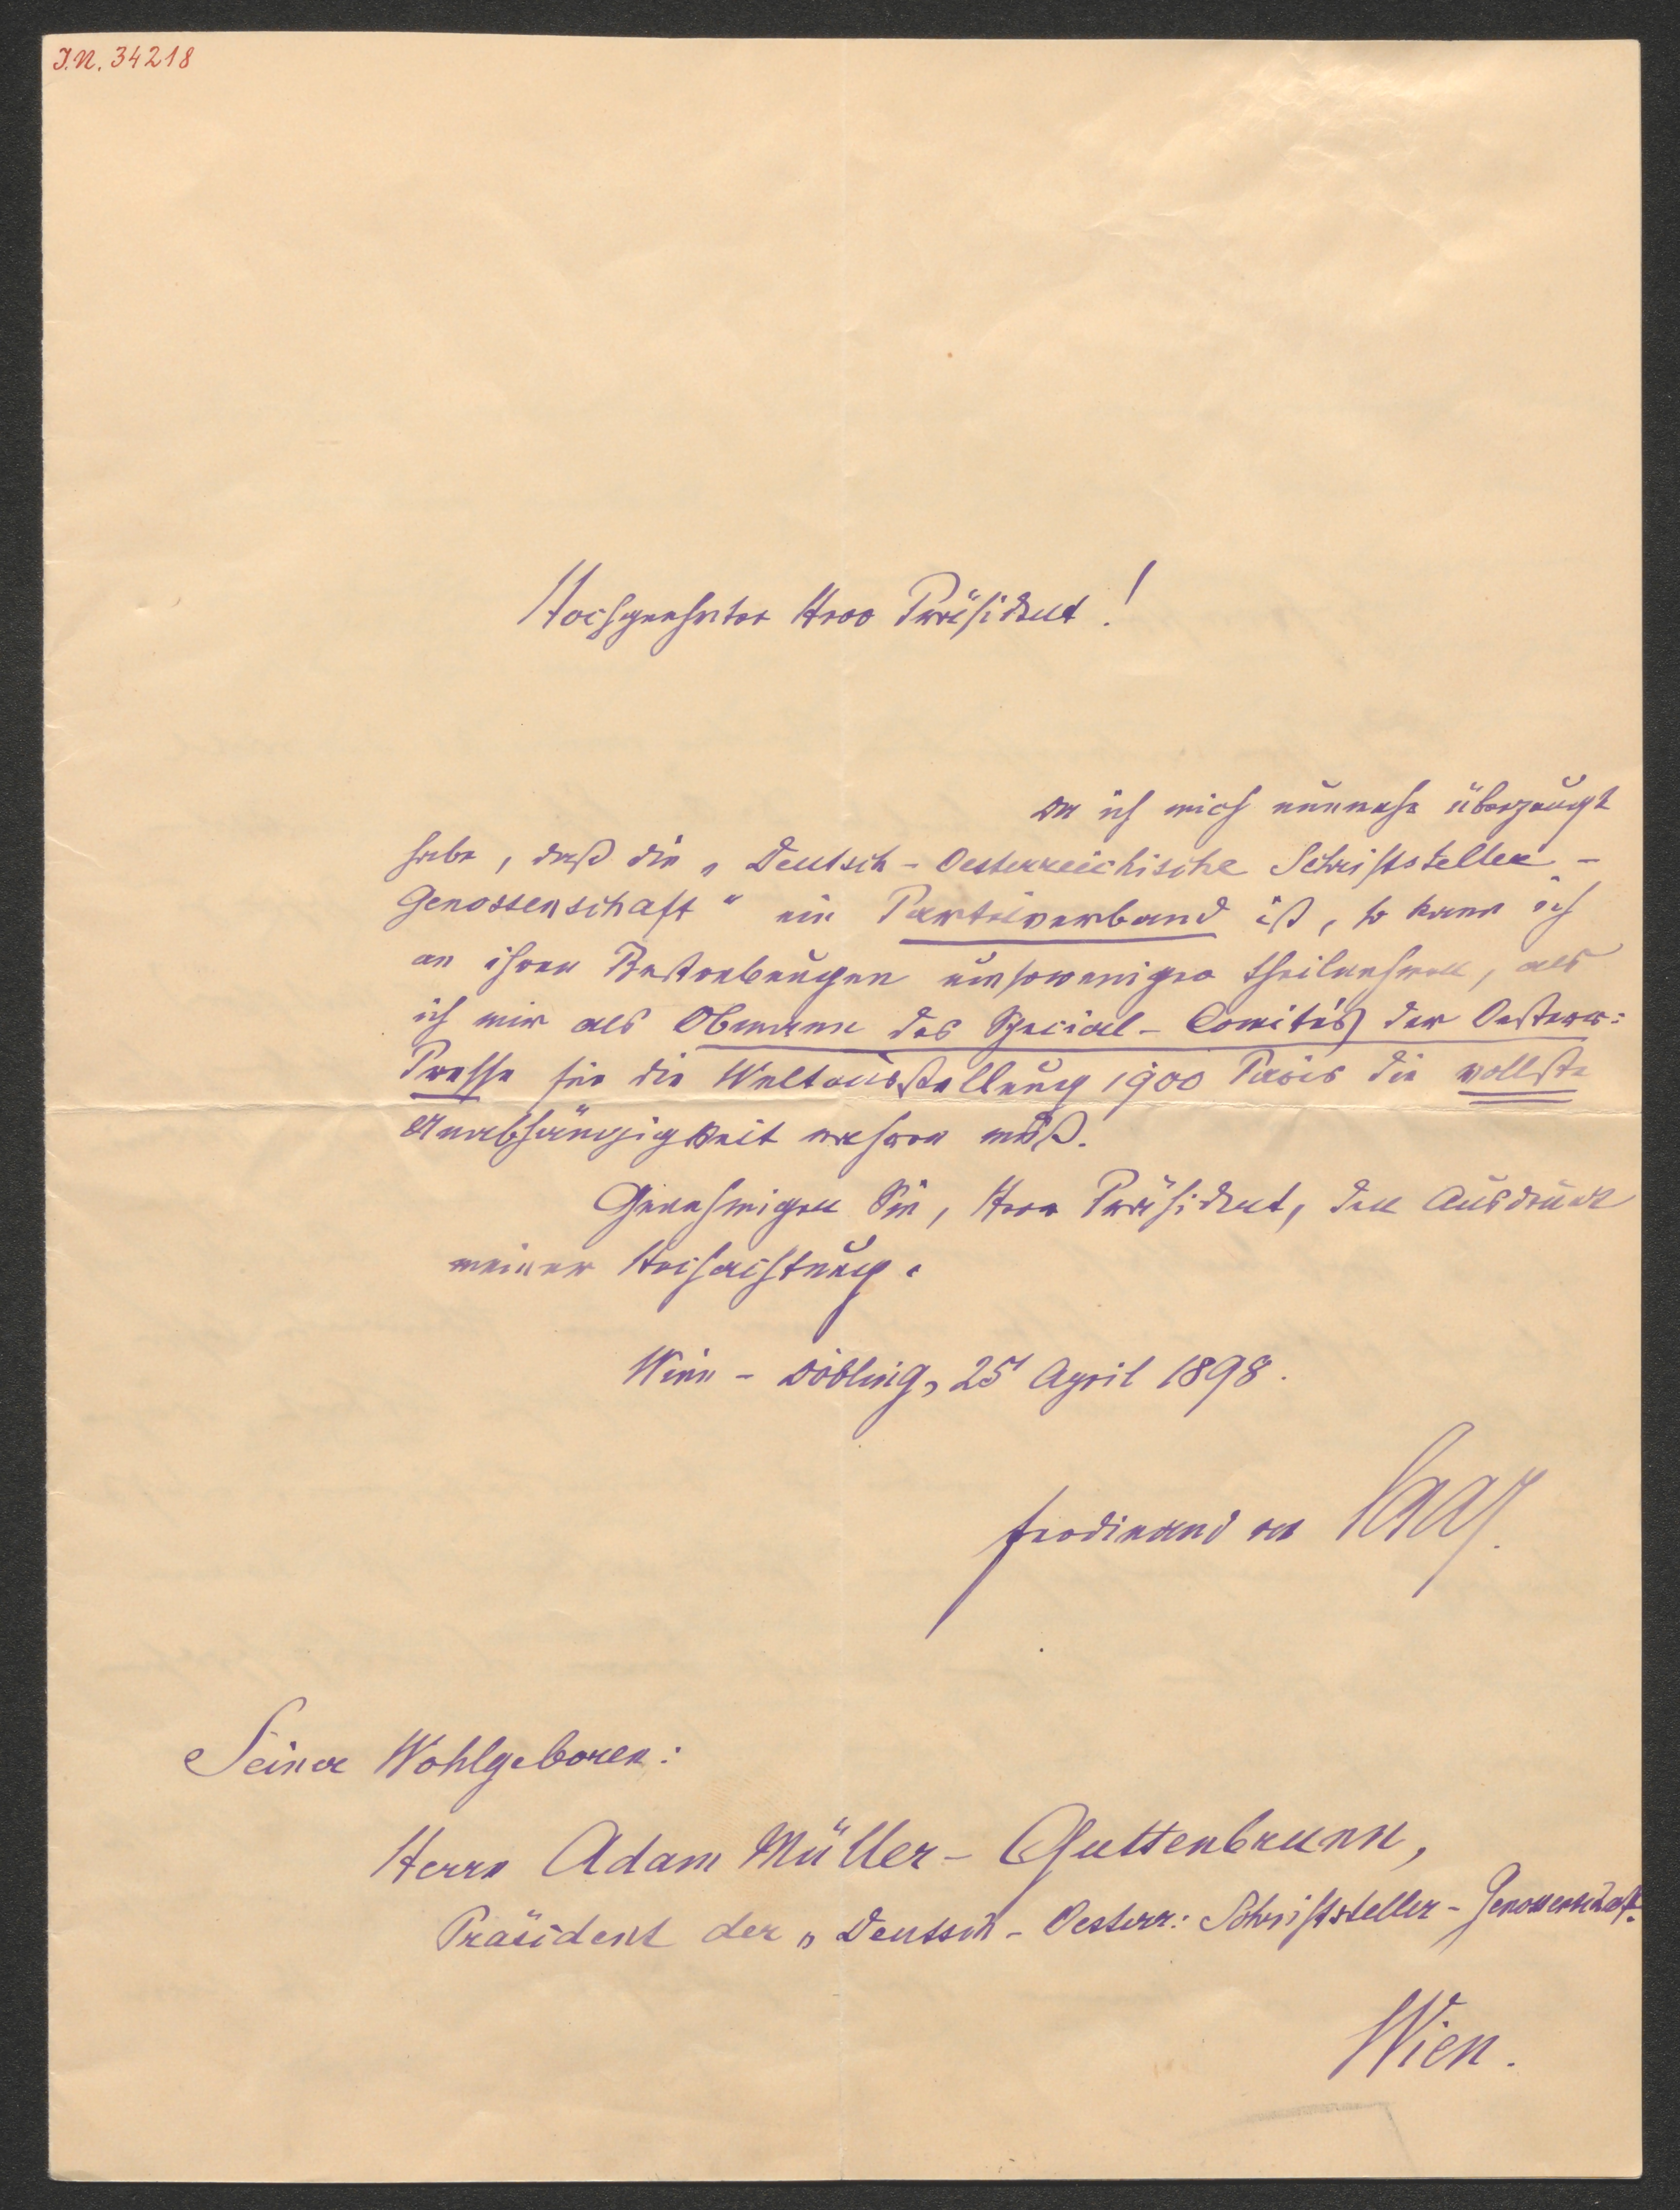 I.N. 34218
Hochgeehrter Herr Präsident!
Da ich mich nunmehr überzeugt
habe, daß die „Deutsch-Oesterreichische Schriftsteller-
Genossenschaft“ ein Parteiverband ist, so kann ich
an ihren Bestrebungen umsoweniger theilnehmen, als
ich mir als Obmann des Special-Comités der Oesterr:
Presse für die Weltausstellung 1900 Paris die vollste
Unabhängigkeit wahren muß.
Genehmigen Sie, Herr Präsident, den Ausdruck
meiner Hochachtung.
Wien-Döbling, 25 April 1898.
Ferdinand von Saar.
Seiner Wohlgeboren:
Herrn Adam Müller-Guttenbrunn,
Präsident der „Deutsch-Oesterr: Schriftsteller-Genossenschaft.
Wien.